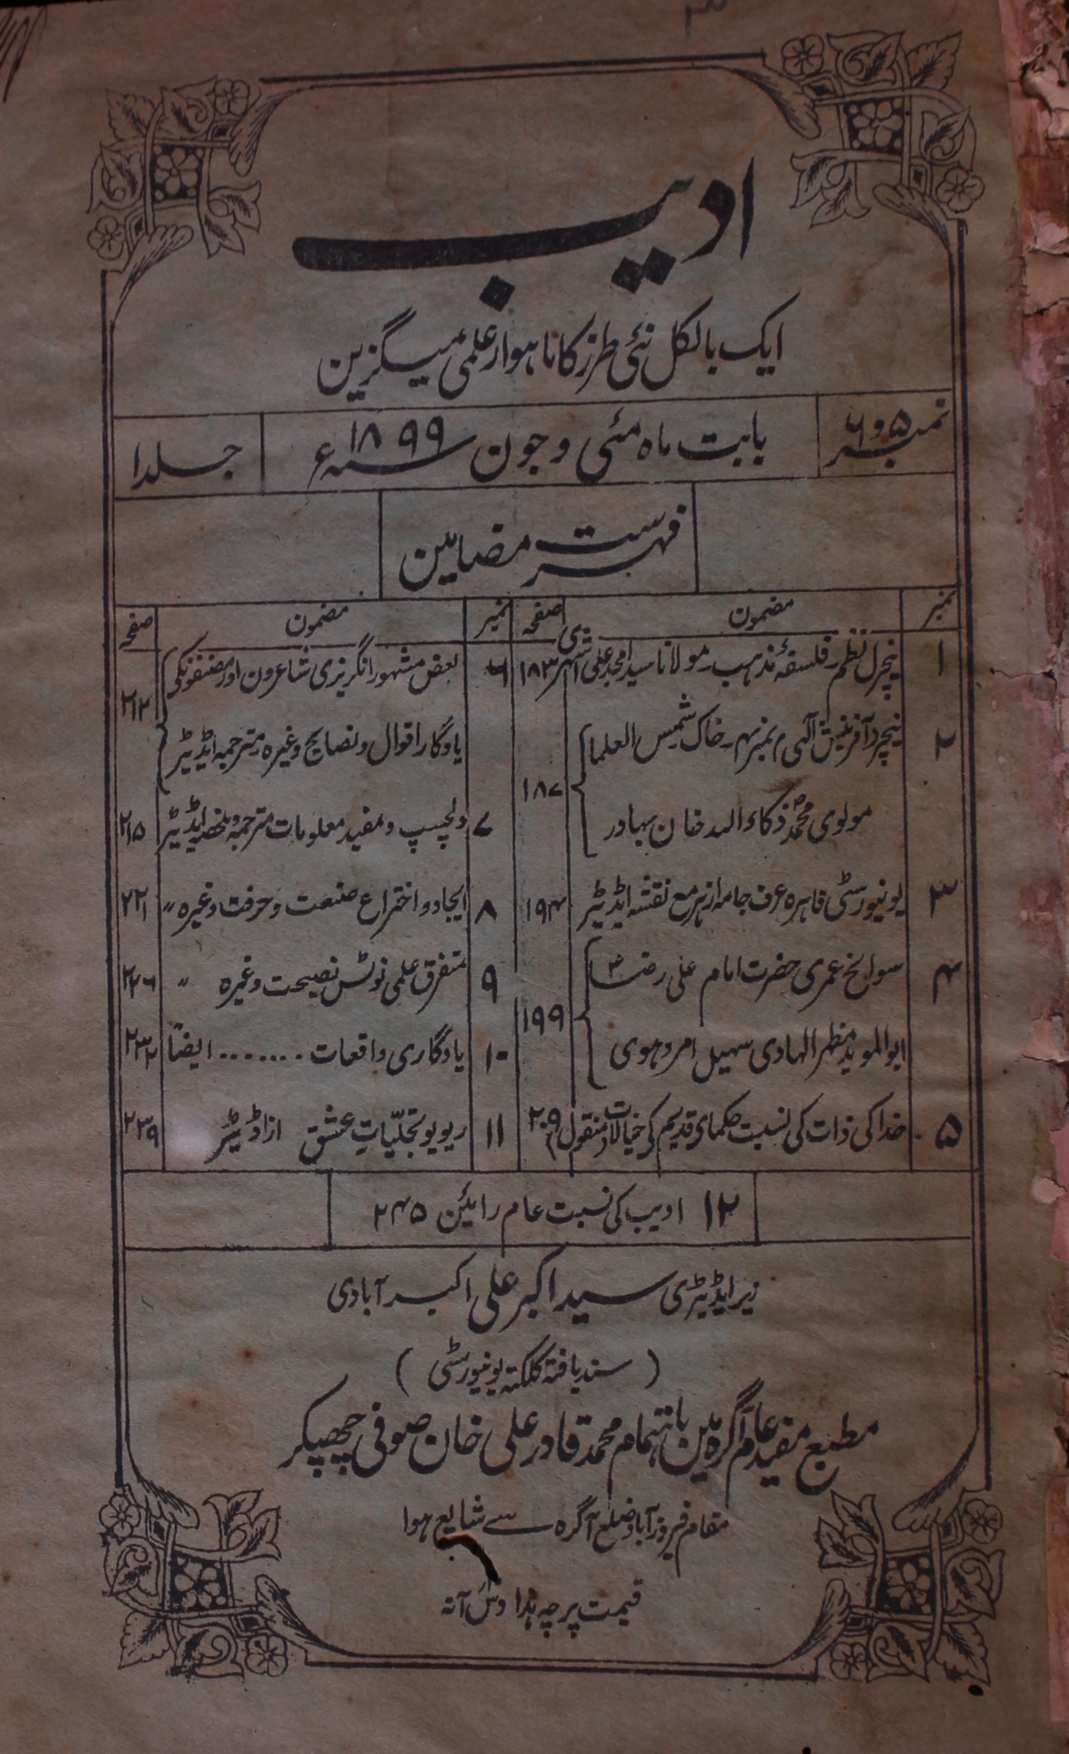 ادیب
ایک بالکل نئی طرز کا ماہوار علمی میگزین
نمبر ۵ و ۶
بابت ماہ مئی و جون سنہ ۱۸۹۹ء
جلد ۱
فہرست مضامین
نمبر مضمون صفحہ
۱ نیچرل نظم۔ فلسفۂ مذہب۔ مولانا سید امجد علی اشہری ۱۸۳
۲ نیچر و آفرینش الٰہی نمبر ۴۔ خاک شمس العلما
مولوی محمد ذکاء اللہ خان بہادر ۱۸۷
۳ یونیورسٹی قاہرہ عرف جامہ ازہر مع نقشہ ایڈیٹر ۱۹۴
۴ سوانح عمری حضرت امام علی رضا ؑ
ابو الموید مظہر الہادی سہیل امروہوی ۱۹۹
۵ خدا کی ذات کی نسبت حکمای قدیم کی خیالات منقول ۲۰۹
نمبر مضمون صفحہ
۶ بعض مشہور انگریزی شاعرون اور مصنفونکی
یادگار اقوال و نصایح وغیرہ مترجمہ ایڈیٹر ۲۱۲
۷ دلچسپ و مفید معلومات مترجمہ و ملخصہ ایڈیٹر ۲۱۵
۸ ایجاد و اختراع صنعت و حرفت وغیرہ 〃 ۲۲۱
۹ متفرق علمی نوٹس نصیحت وغیرہ 〃 ۲۲۶
۱۰ یادگاری واقعات ....... ایضاً ۲۳۲
۱۱ ریویو تجلیّاتِ عشق از اڈیٹر ۲۳۹
۱۲ ادیب کی نسبت عام رائین ۲۴۵
زیر ایڈیٹری سید اکبر علی اکبرآبادی
(سند یافتہ کلکتہ یونیورسٹی)
مطبع مفید عام آگرہ مین باہتمام محمد قادر علی خان صوفی چھپکر
مقام فیروزآباد ضلع آگرہ سے شایع ہوا
قیمت پرچہ ہذا دس آنہ